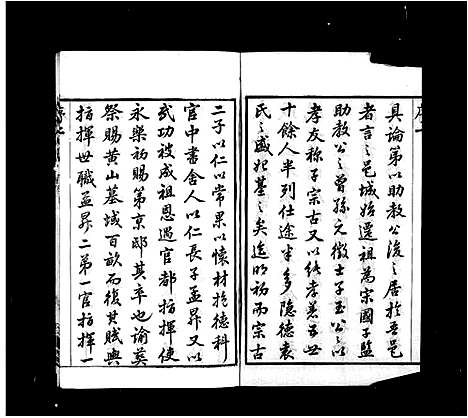 具論第以助教公後之居於吾邑
者言之邑城始遷祖為宗國子監
助教公之曾孫元徵士子玉公之以
孝友称子宗古又以純孝著子姓
十餘人半列仕途半多隐德袁
氏之盛犯基之矣迨明初而宗古
二子以仁以常果以懷材抱德科
官中書舍人以仁長子孟昇又以
武功被成祖恩遇官都指揮使
永樂初賜第京邸其卒也諭葬
祭賜黄山墓域百畝而復其賦與
指揮世職孟昇二弟一官指揮一